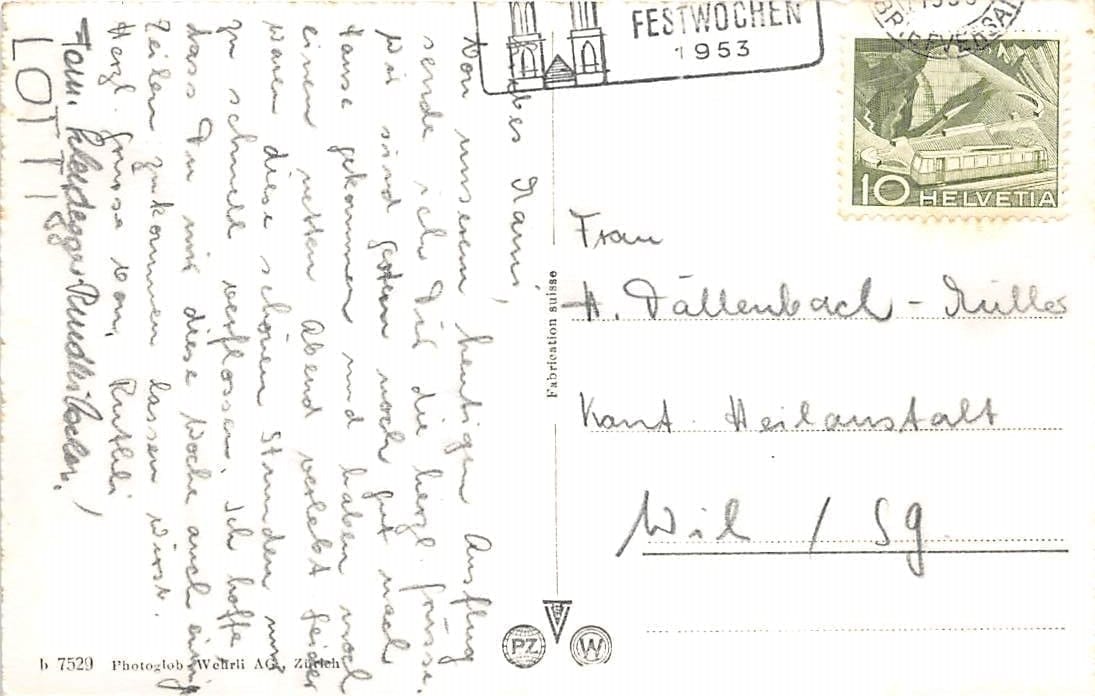 FESTWOCHEN
1953
BRIEFVERSAND
10 HELVETIA
Liebes Mami,
Von unserem heutigen Ausflug
sende ich Dir die herzl. Grüsse.
Wir sind gestern noch gut nach
Hause gekommen und haben noch
einen netten Abend verlebt. Leider
waren diese schönen Stunden nur
zu schnell verflossen. Ich hoffe
dass Du mir diese Woche auch einig
Zeilen zukommen lassen wirst.
Herzl. Grüsse von, Ruthli
Fam.
LOTTI
Fabrication suisse
Frau
H. Dällenbach - Müller
Kant. Heilanstalt
Wil / Sg.
PZ
W
b 7529 Photoglob-Wehrli AG., Zürich